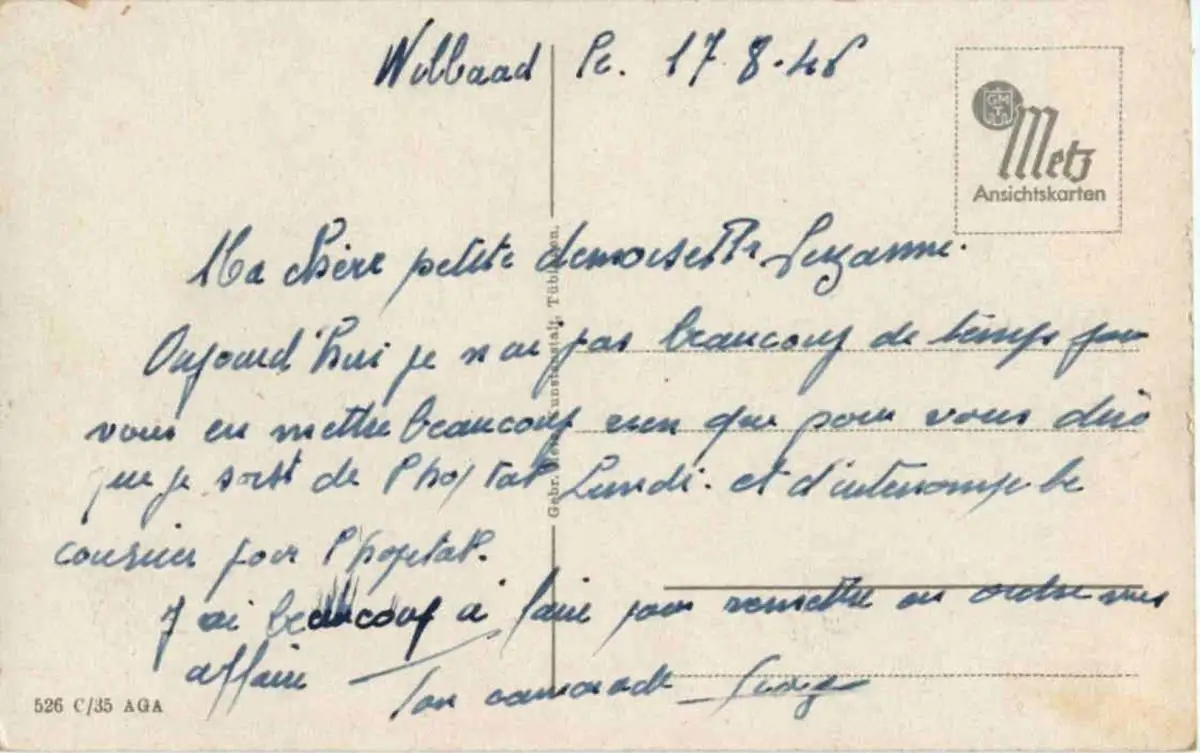 Wilbaad le. 17.8.46
GMT
Metz
Ansichtskarten
Ma chère petite demoiselle Suzanne.
Aujourd'hui je n'ai pas beaucoup de temps pour
vous en mettre beaucoup rien que pour vous dire
que je sort de l'hopital Lundi. et d'interrompe le
courrier pour l'hopital.
J'ai beaucoup a faire pour remettre en ordre mes
affaire
Ton camarade
Gebr. Metz, Kunstanstalt, Tübingen.
526 C/35 AGA